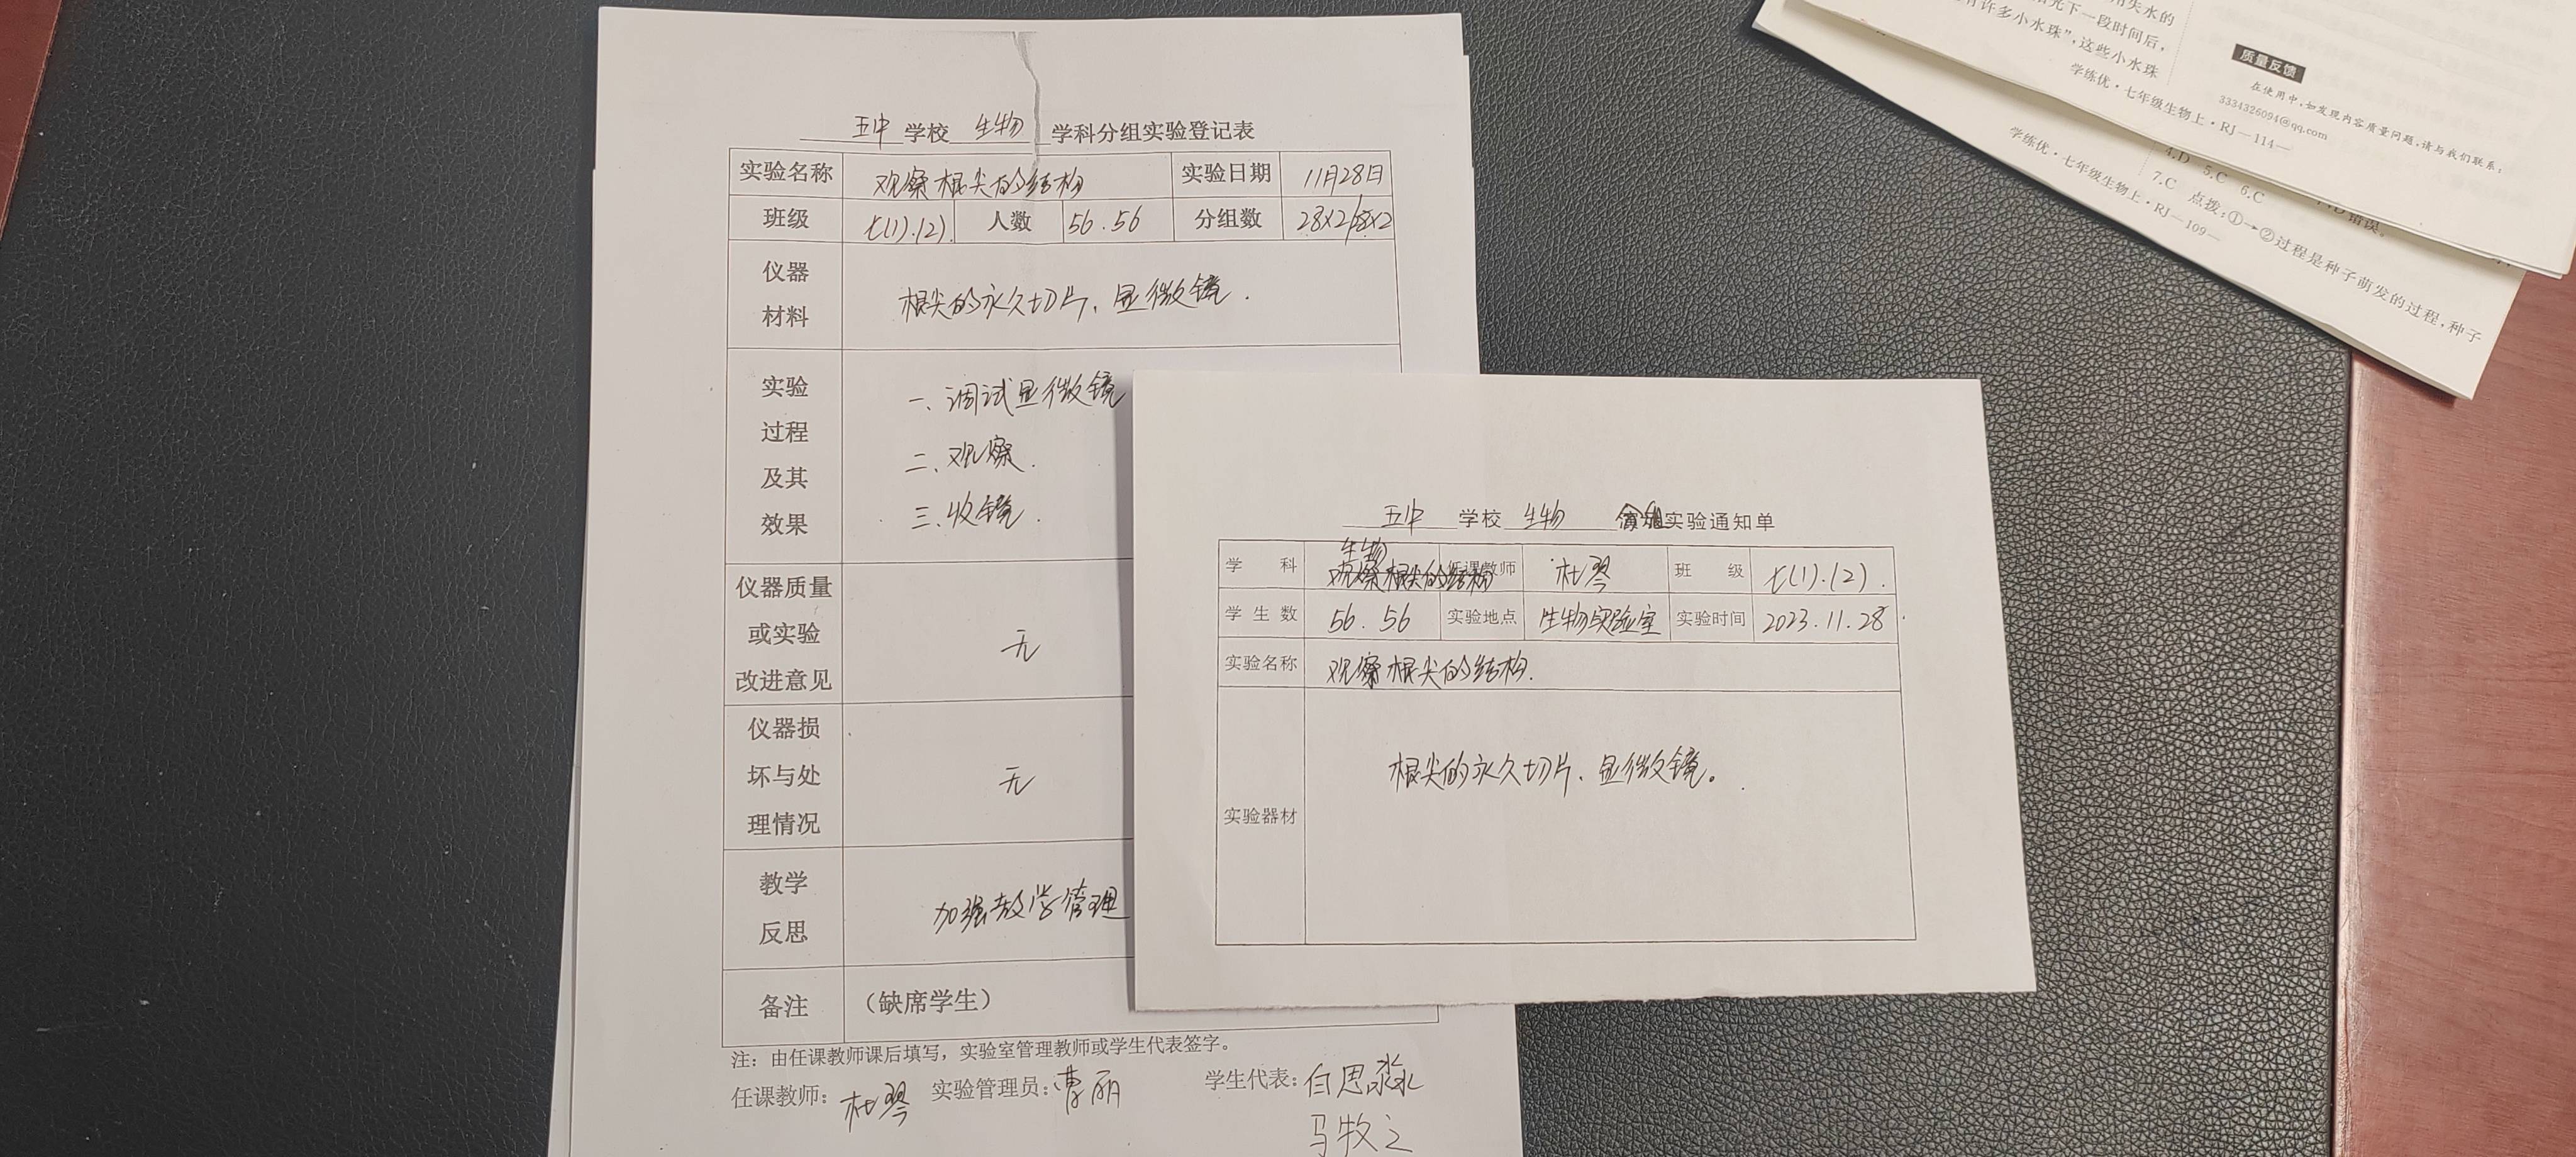 五中 学校 生物 学科分组实验登记表
实验名称 观察根尖的结构 实验日期 11月28日
班级 七(1).(2). 人数 56.56 分组数 28×2/28×2
仪器
材料
根尖的永久切片、显微镜.
实验
过程
及其
效果
一、调试显微镜
二、观察.
三、收镜.
仪器质量
或实验
改进意见
无
仪器损
坏与处
理情况
无
教学
反思
加强教学管理
备注 (缺席学生)
注：由任课教师课后填写，实验室管理教师或学生代表签字。
任课教师：杜琴 实验管理员：曹丽 学生代表：白思淼
马牧之
五中 学校 生物 分组实验通知单
学 科 生物 任课教师 杜琴 班 级 七(1).(2).
观察根尖的结构
学生数 56.56 实验地点 生物实验室 实验时间 2023.11.28
实验名称 观察根尖的结构.
实验器材 根尖的永久切片、显微镜。
用失水的
阳光下一段时间后，
有许多小水珠”,这些小水珠
学练优·七年级生物上·RJ—114—
质量反馈
在使用中,如发现内容质量问题,请与我们联系:
3334326094@qq.com
4.D 5.C 6.C
错误。
7.C 点拨:①→②过程是种子萌发的过程,种子
学练优·七年级生物上·RJ—109—